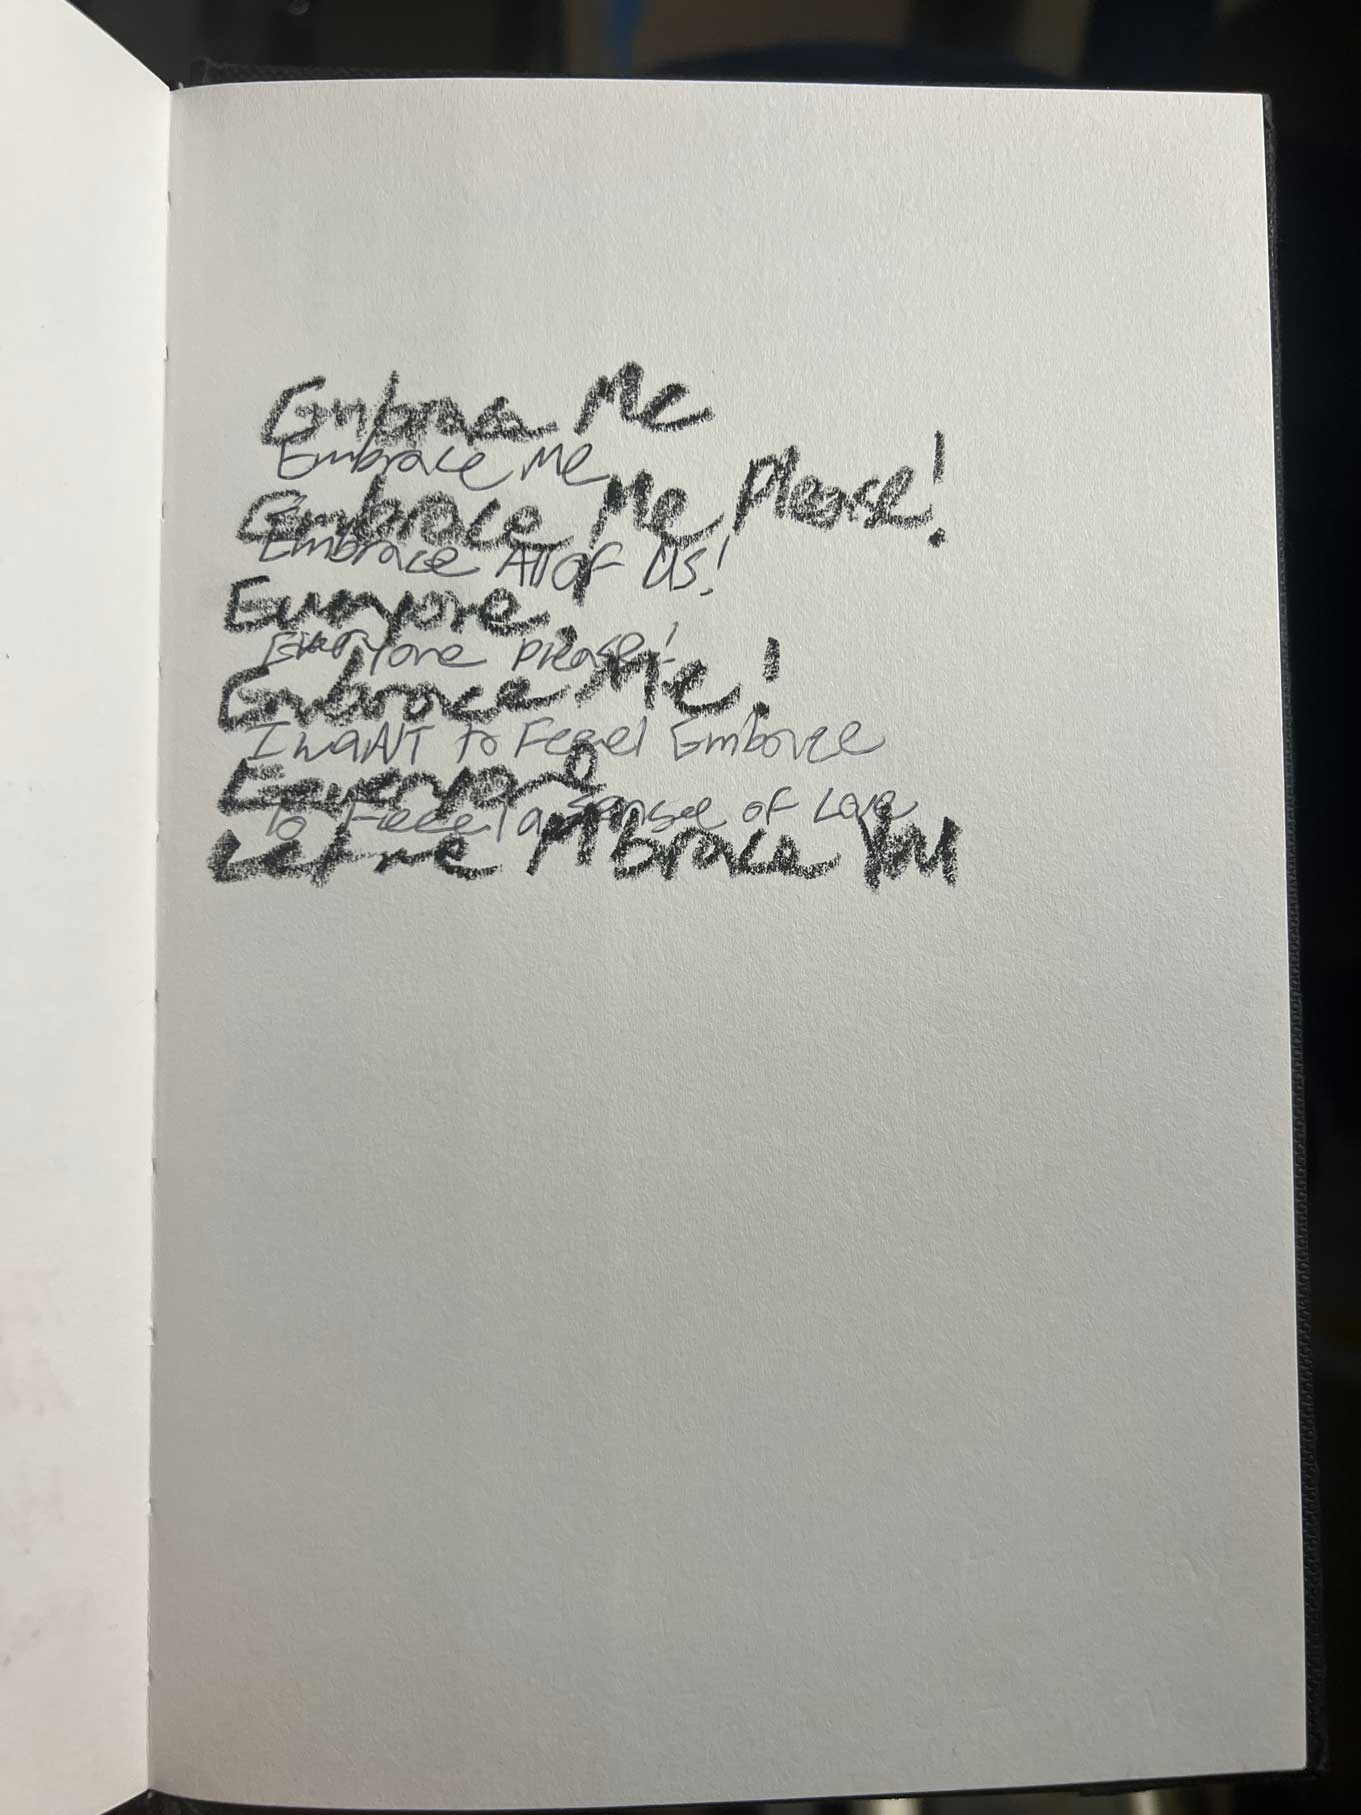 Embrace Me
Embrace Me
Embrace Me Please!
Embrace All of Us!
Everyone,
Everyone please!
Embrace Me!
I waNT to Feeel Embrace
Everyone
To Feeel a sensee of Love
Let me M'brace You